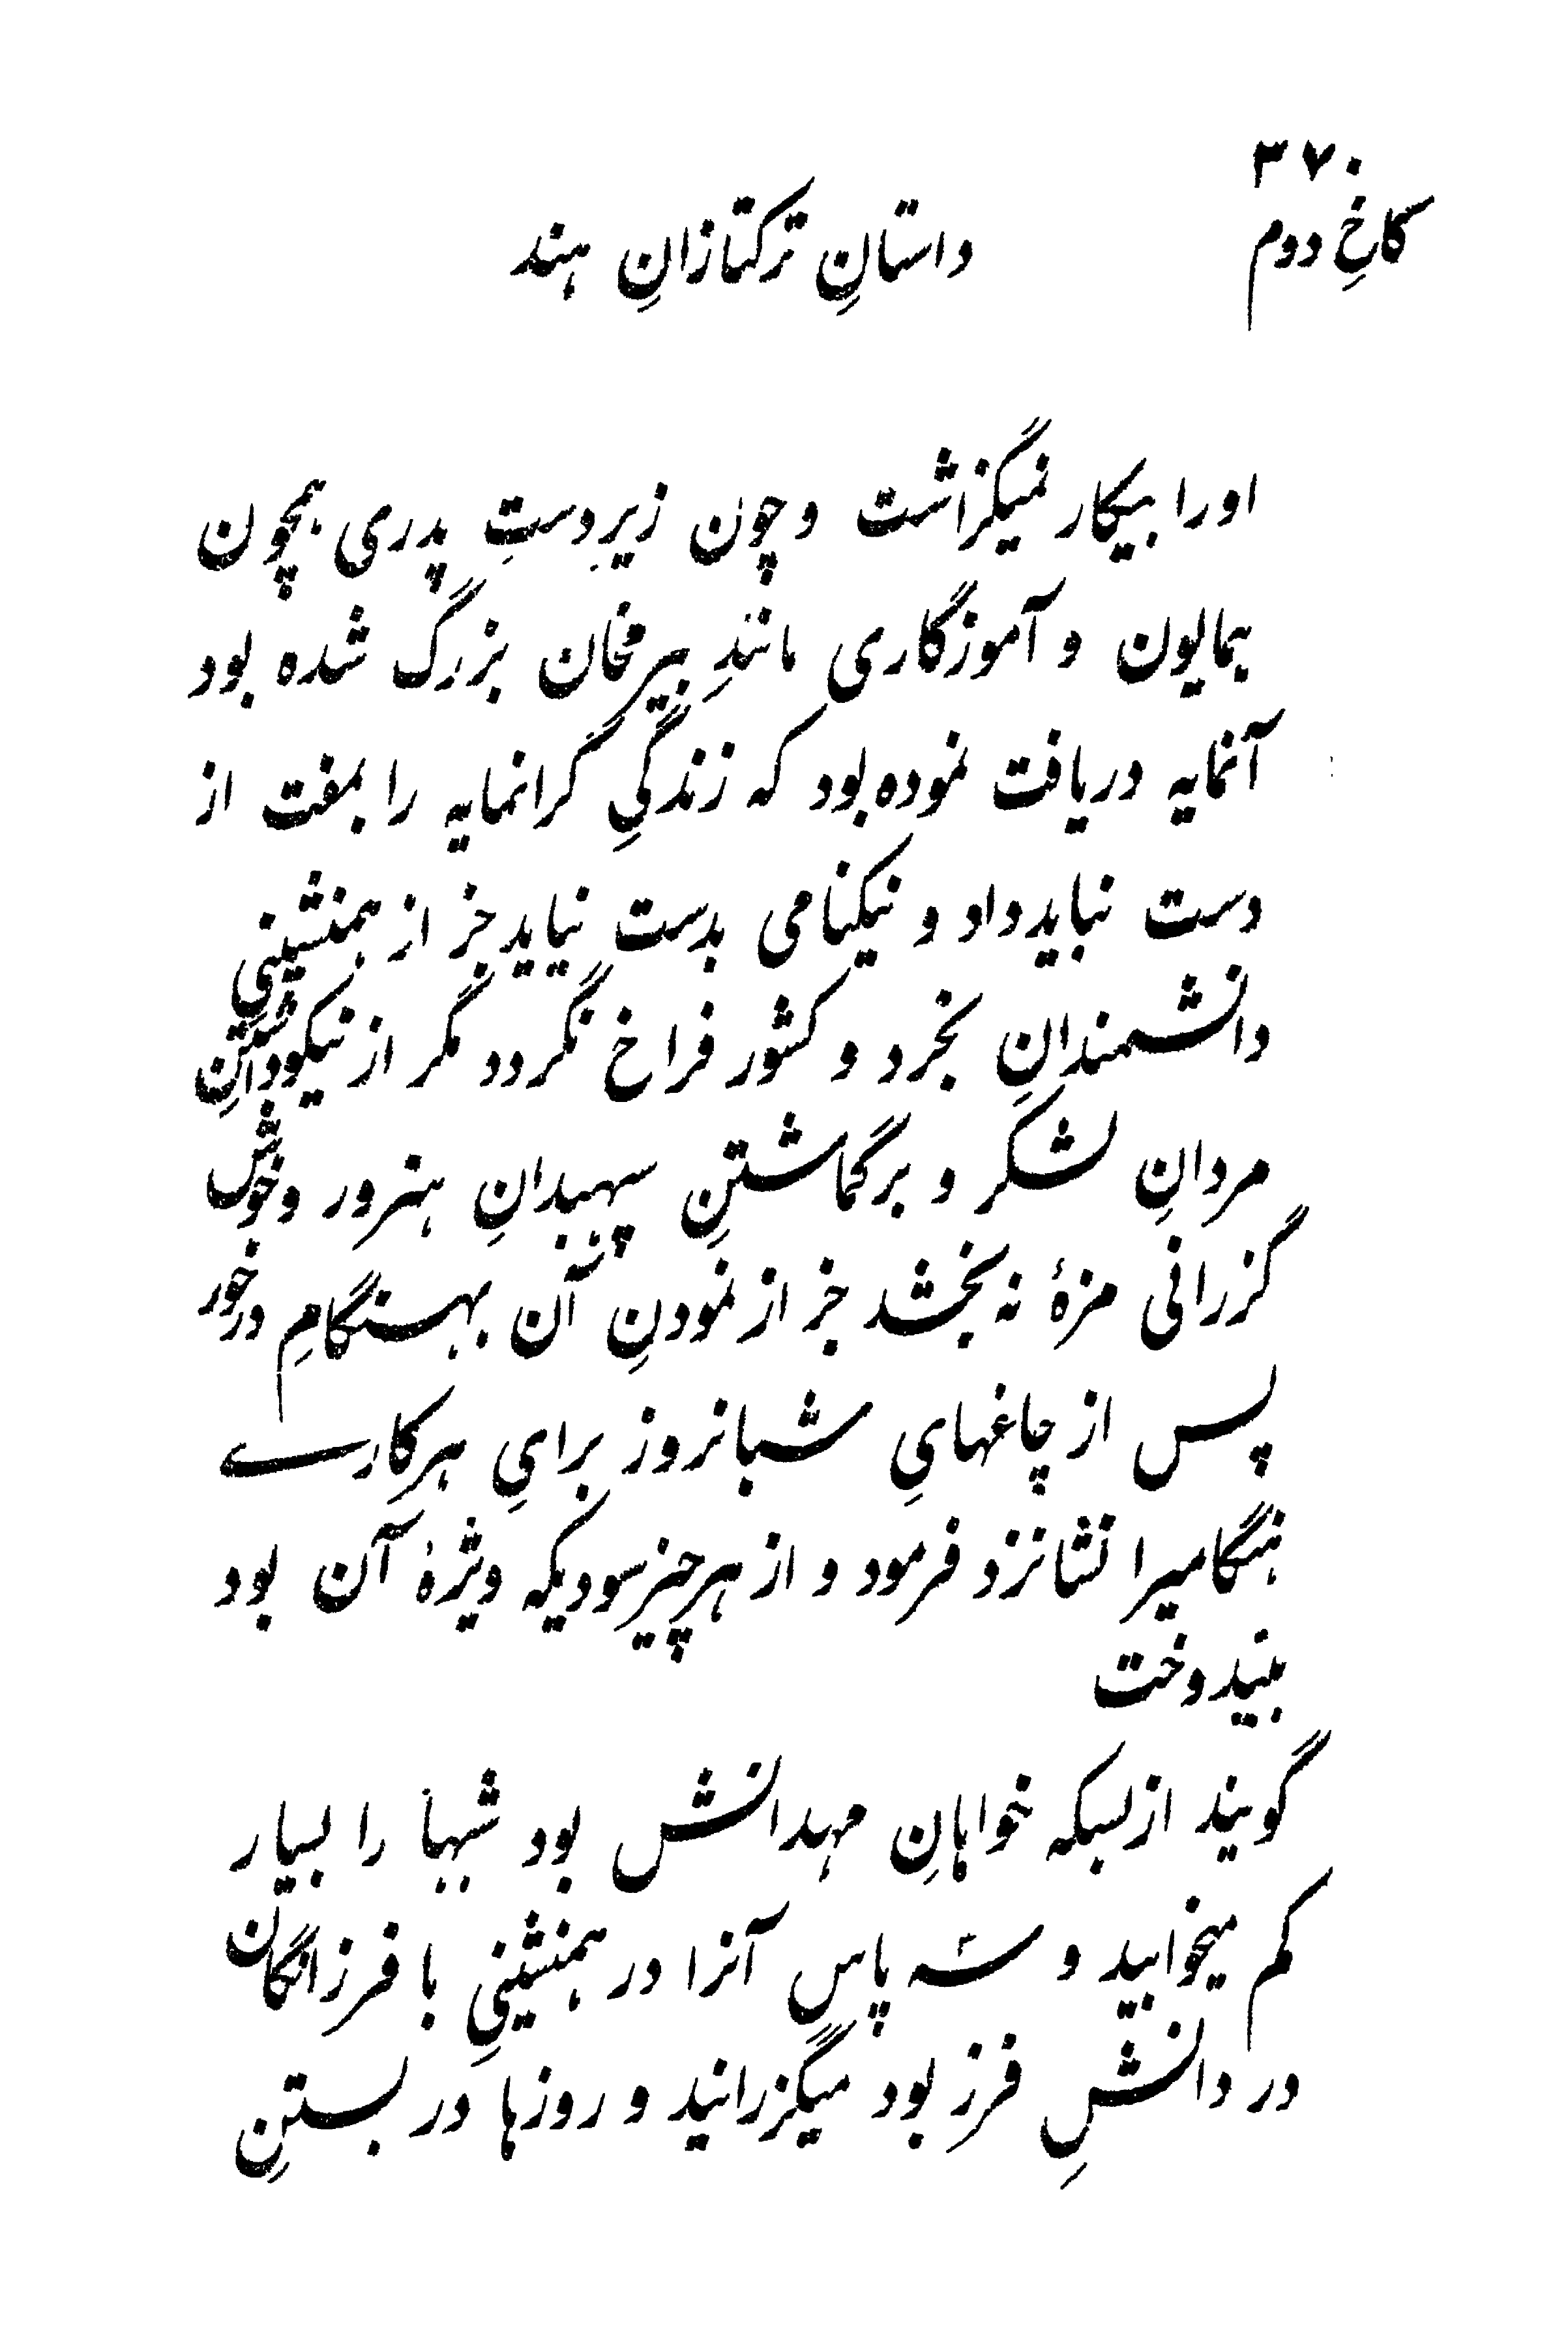 ۳۷۰
کاخِ دوم
داستانِ ترکتازانِ هند
اورا بیکار نمیگزاشت و چون زیرِدستِ پدری همچون
همایون و آموزگاری مانندِ بیرمخان بزرگ شده بود
آنمایه دریافت نموده بود که زندگیِ گرانمایه را بمفت از
دست نباید داد و نیکنامی بدست نیاید جز از همنشینیِ
دانشمندانِ بخرد و کشور فراخ نگردد مگر از نیکوداشتنِ
مردانِ لشکر و برگماشتنِ سپهبدانِ هنرور و خوش
گزرانی مزهٔ نه بخشد جز از نمودنِ آن بهنگامِ درخور
پس از چاغهایِ شبانروز برایِ هرکارے
هنگامیرا نشانزد فرمود و از هرچیز سودیکه ویژهٔ آن بود
بیندوخت
گویند ازبسکه خواهانِ مهدانش بود شبها را بسیار
کم میخوابید و سه پاس آنرا در همنشینیِ با فرزانگان
در دانشِ فرز بود میگزرانید و روزها در بستنِ